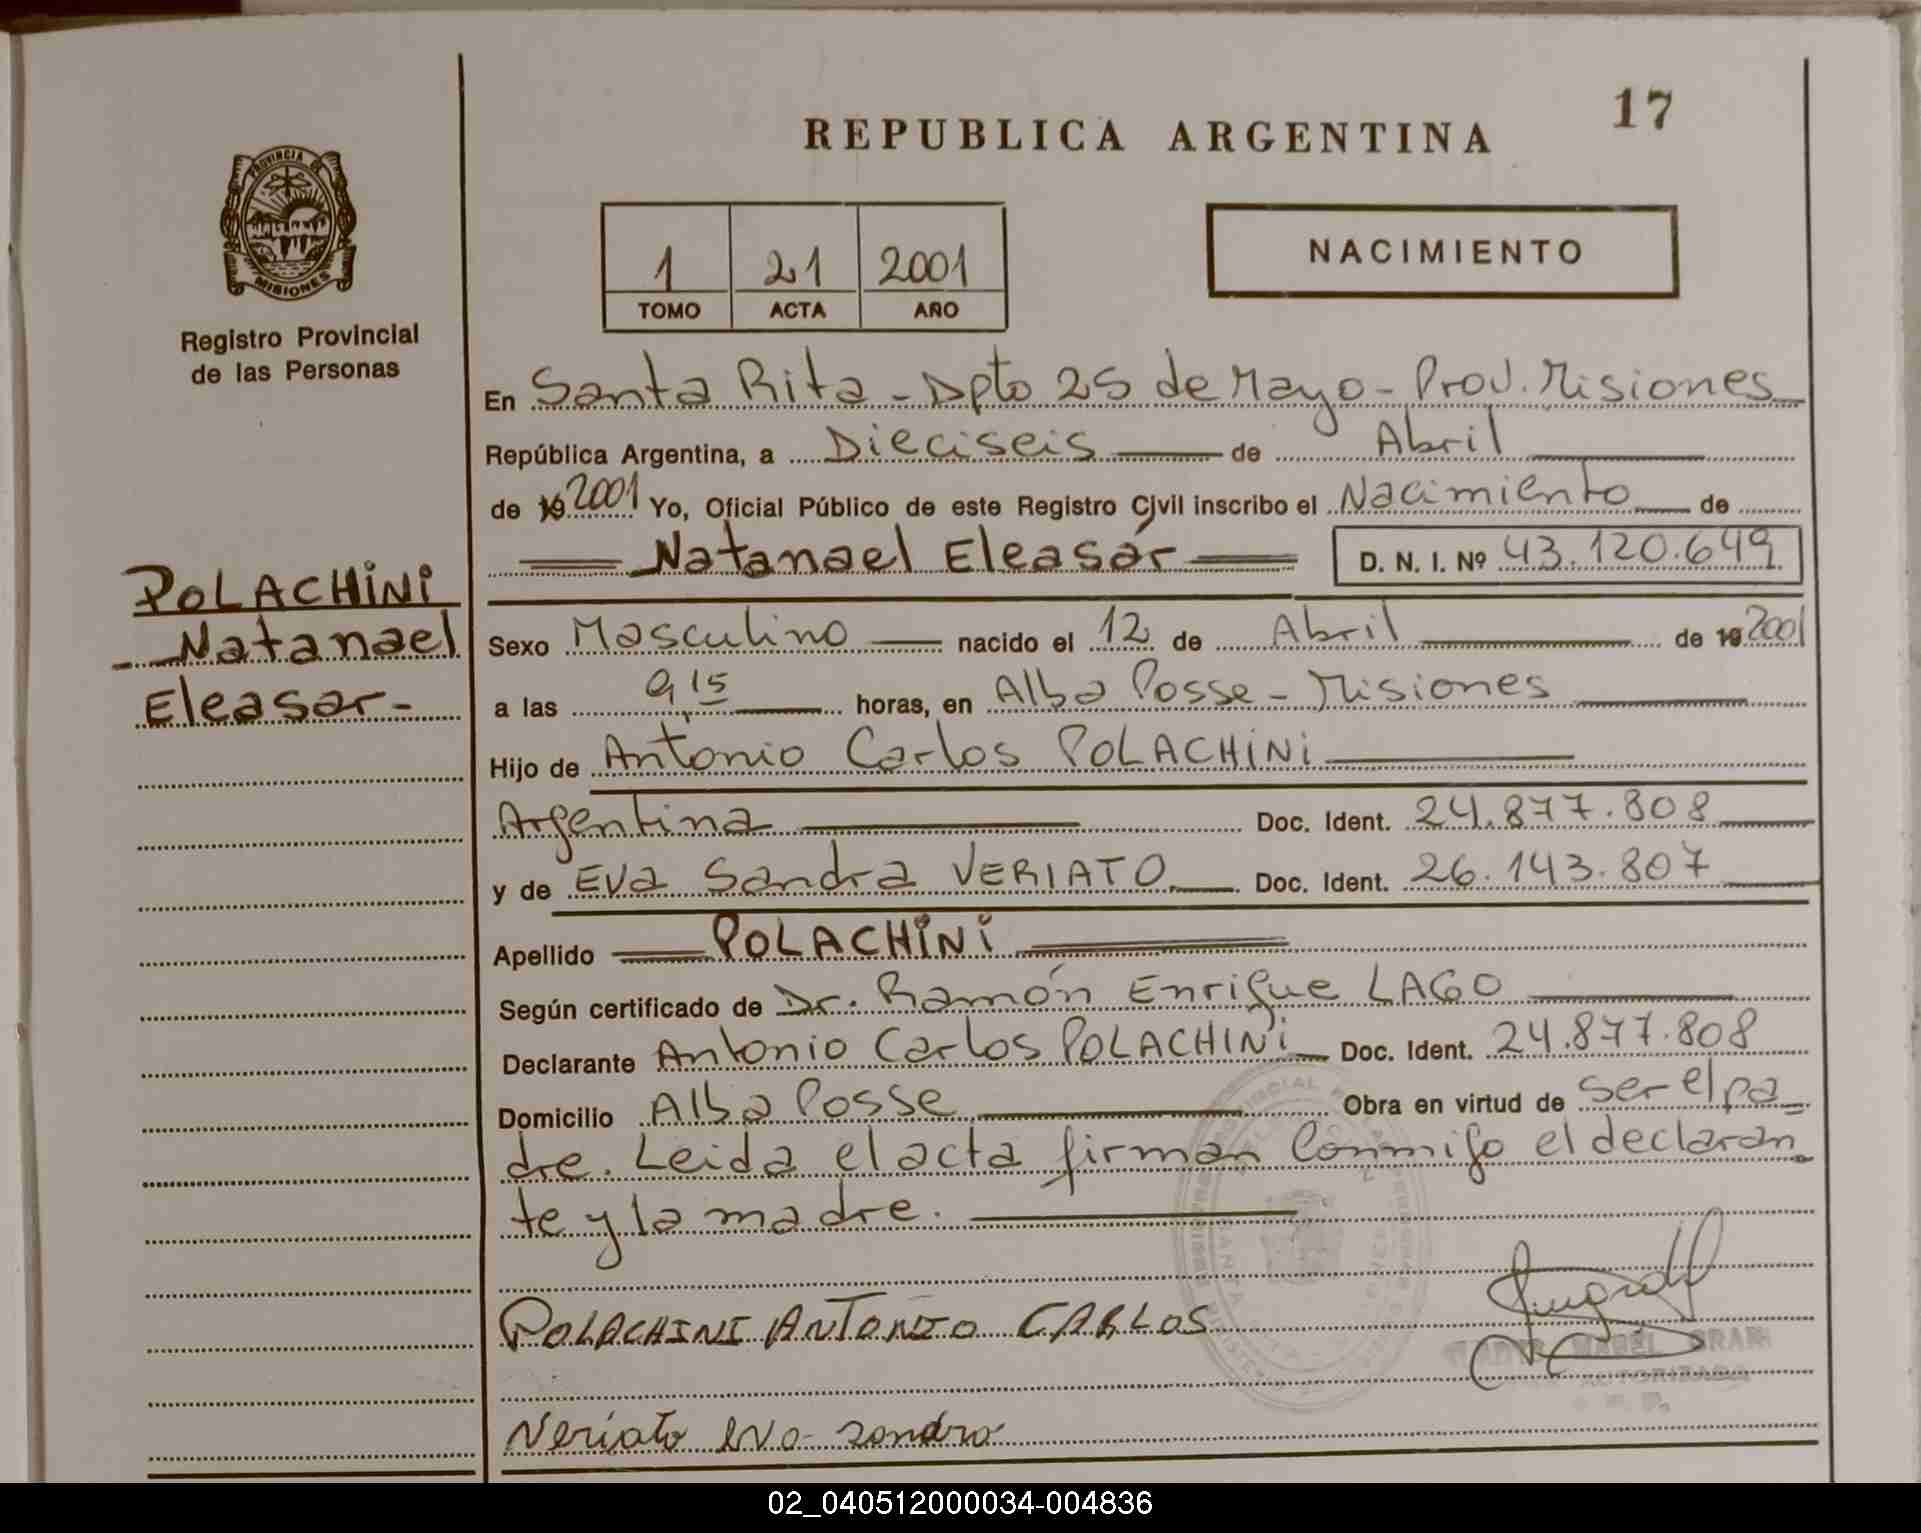 17
REPUBLICA ARGENTINA
PROVINCIA DE
MISIONES
Registro Provincial
de las Personas
1 21 2001
TOMO ACTA AÑO
NACIMIENTO
En Santa Rita - Dpto 25 de Mayo - Prov. Misiones
República Argentina, a Dieciseis de Abril
de 19 2001 Yo, Oficial Público de este Registro Civil inscribo el Nacimiento de
Natanael Eleasár D. N. I. Nº 43.120.649
POLACHINI
Natanael
Eleasar-
Sexo Masculino nacido el 12 de Abril de 19 2001
a las 9,15 horas, en Alba Posse - Misiones
Hijo de Antonio Carlos POLACHINI
Argentina Doc. Ident. 24.877.808
y de Eva Sandra VERIATO Doc. Ident. 26.143.807
Apellido POLACHINI
Según certificado de Dr. Ramón Enrique LAGO
Declarante Antonio Carlos POLACHINI Doc. Ident. 24.877.808
Domicilio Alba Posse Obra en virtud de ser el pa=
dre. Leida el acta firman Conmigo el declaran
te y la madre.
POLACHINI ANTONIO CARLOS
MABEL
AUTORIZADA
Veriato eva sandra
02_040512000034-004836